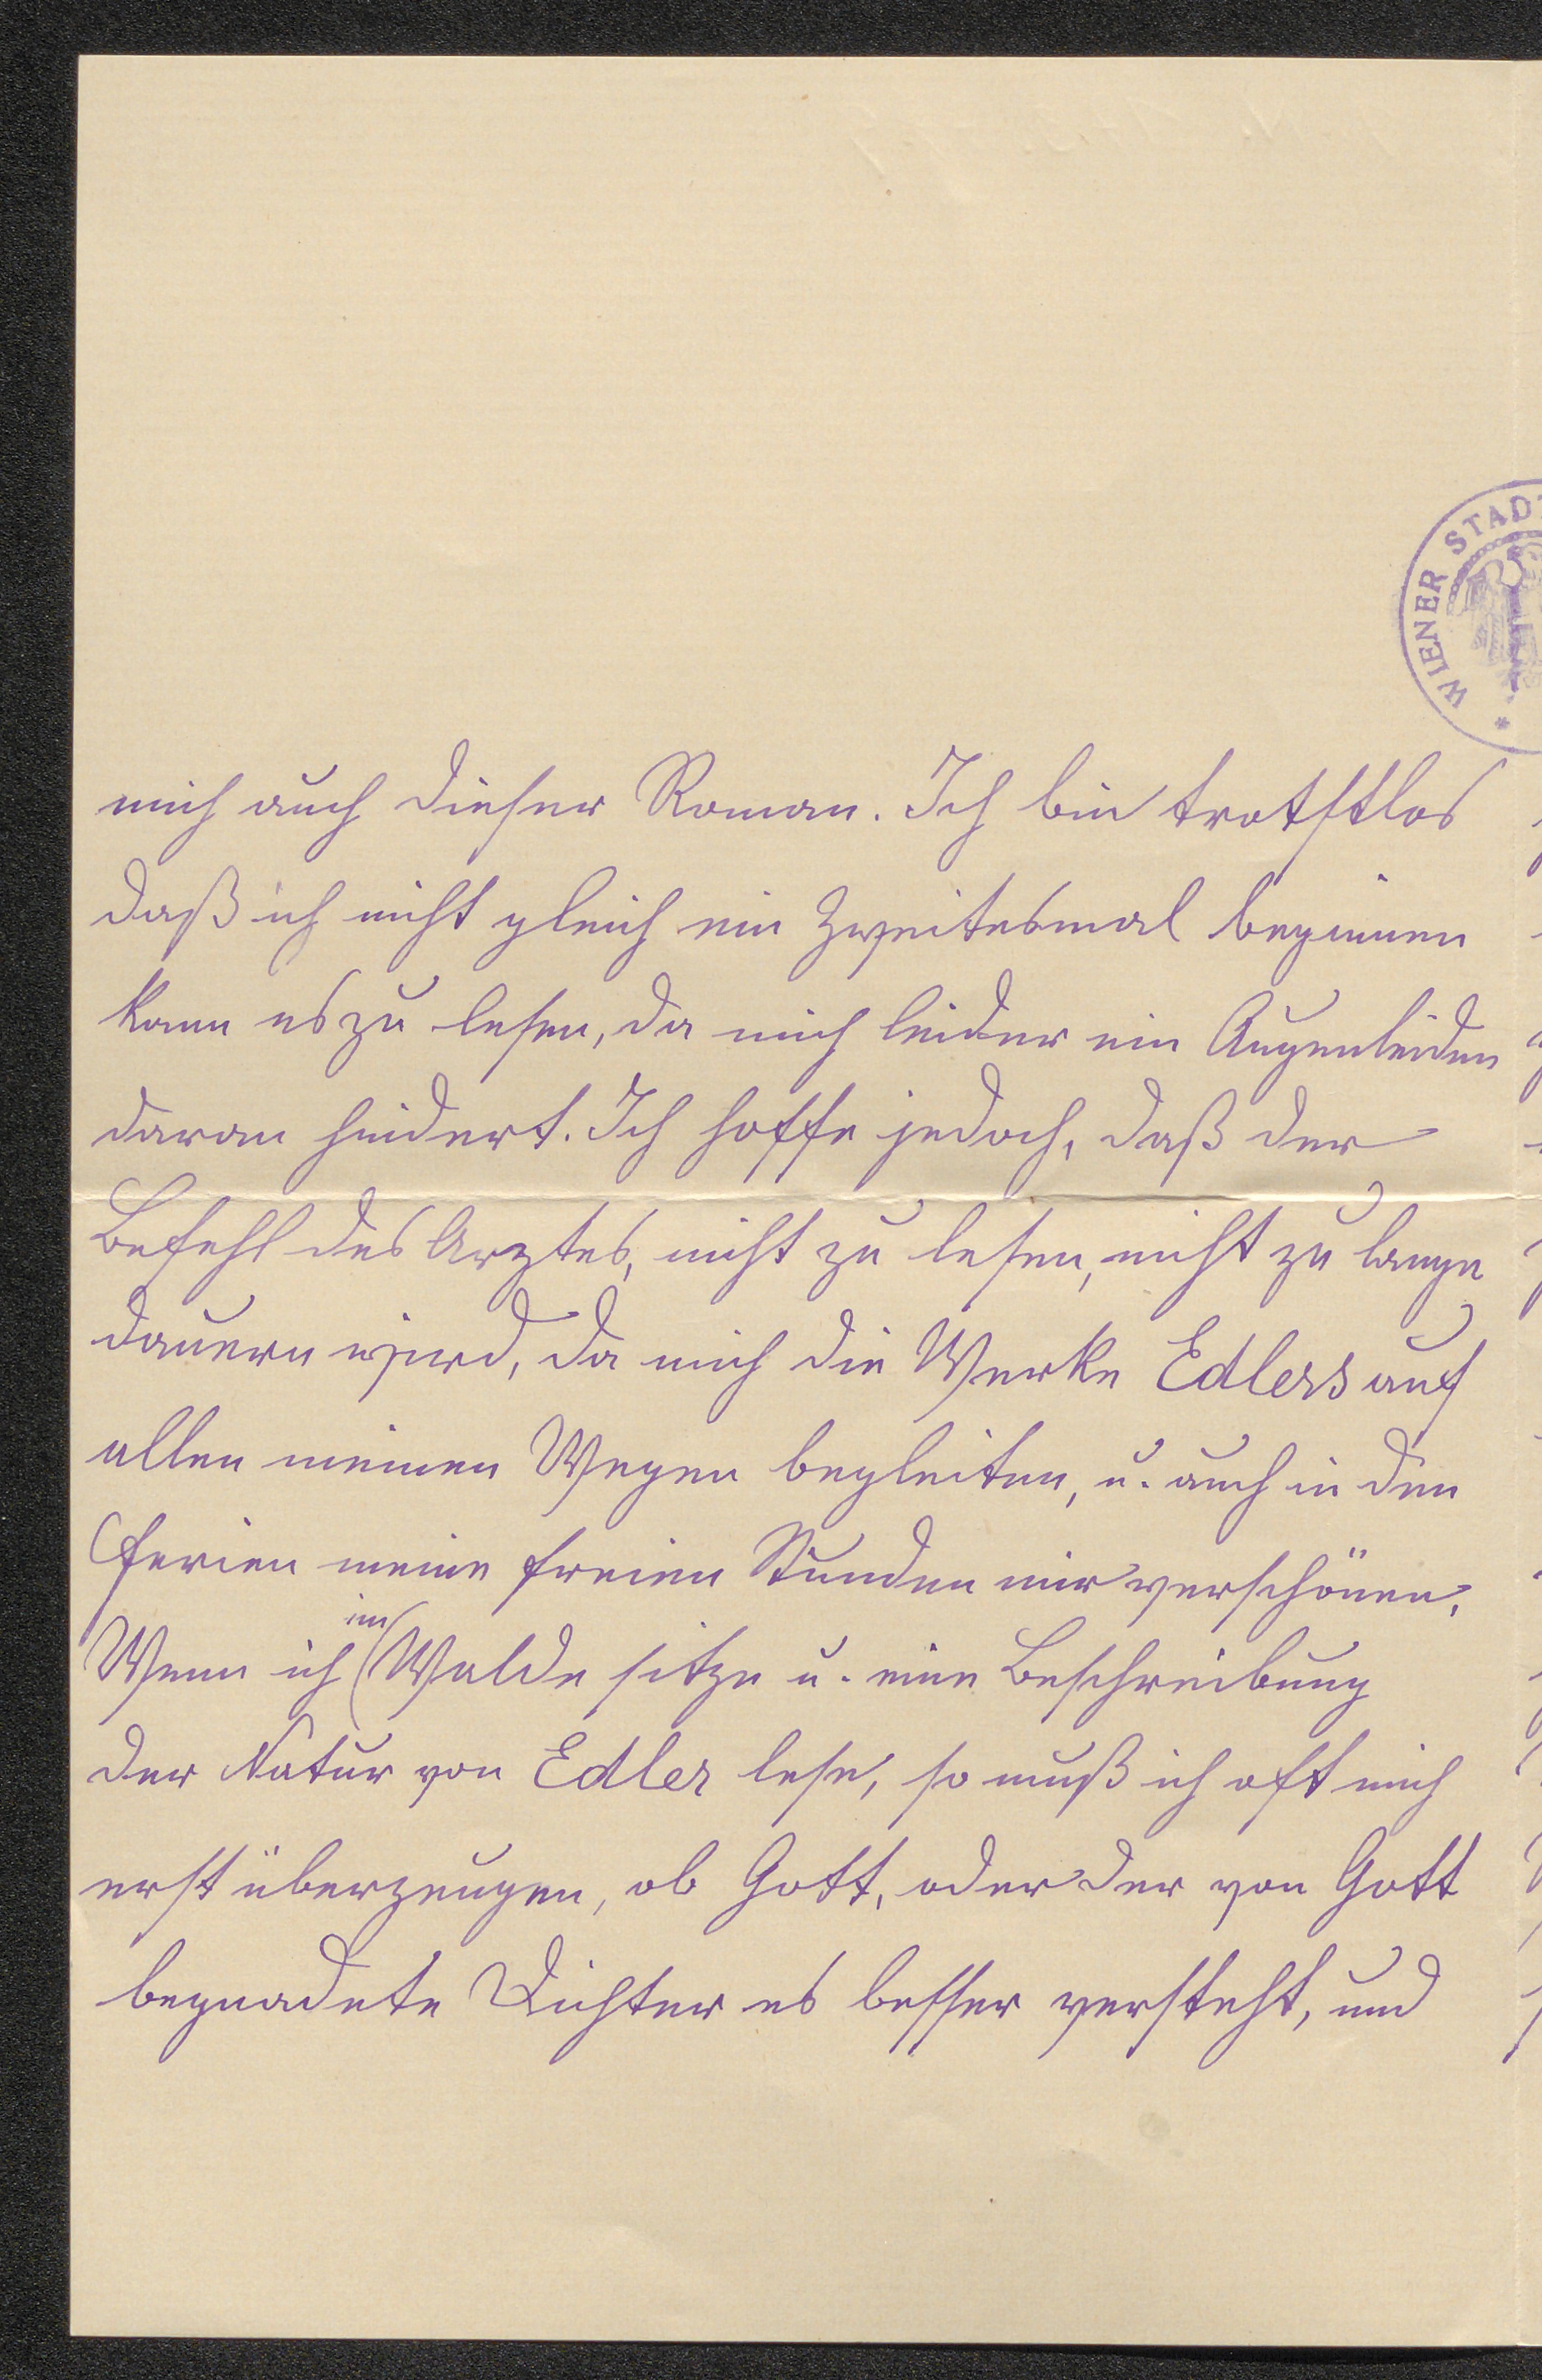 WIENER STADT
mich auch dieser Roman. Ich bin trotstlos
daß ich nicht gleich ein Zweitesmal beginnen
kann es zu lesen, da mich leider ein Augenleiden
daran hindert. Ich hoffe jedoch, daß der
Befehl des Arztes, nicht zu lesen, nicht zu lange
dauern wird, da mich die Werke Edlers auf
allen meinen Wegen begleiten, u. auch in den
Ferien meine freien Stunden mir verschönen.
im
Wenn ich Walde sitze u. eine Beschreibung
der Natur von Edler lese, so muß ich oft mich
erst überzeugen, ob Gott, oder der von Gott
begnadete Dichter es besser versteht, und